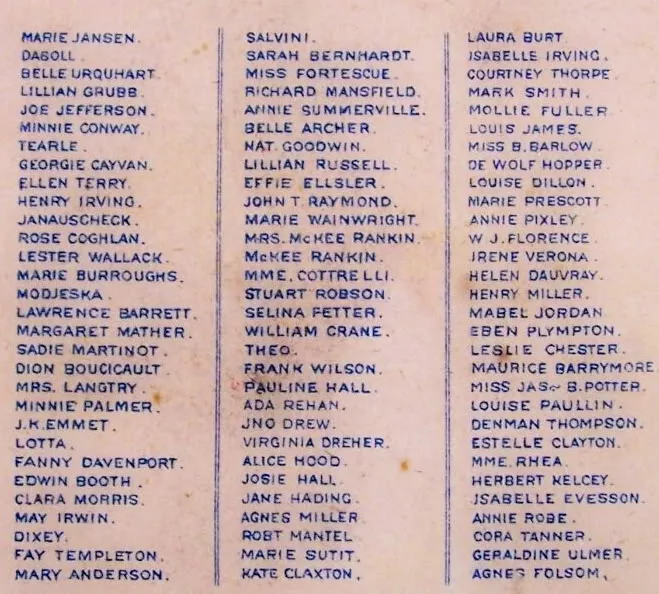 MARIE JANSEN.
DABOLL.
BELLE URQUHART.
LILLIAN GRUBB.
JOE JEFFERSON.
MINNIE CONWAY.
TEARLE.
GEORGIE CAYVAN.
ELLEN TERRY.
HENRY IRVING.
JANAUSCHECK.
ROSE COGHLAN.
LESTER WALLACK.
MARIE BURROUGHS.
MODJESKA.
LAWRENCE BARRETT.
MARGARET MATHER.
SADIE MARTINOT.
DION BOUCICAULT.
MRS. LANGTRY.
MINNIE PALMER.
J.K.EMMET.
LOTTA.
FANNY DAVENPORT.
EDWIN BOOTH.
CLARA MORRIS.
MAY IRWIN.
DIXEY.
FAY TEMPLETON.
MARY ANDERSON.
SALVINI.
SARAH BERNHARDT.
MISS FORTESCUE.
RICHARD MANSFIELD.
ANNIE SUMMERVILLE.
BELLE ARCHER.
NAT. GOODWIN.
LILLIAN RUSSELL.
EFFIE ELLSLER.
JOHN T. RAYMOND.
MARIE WAINWRIGHT.
MRS. McKEE RANKIN.
McKEE RANKIN.
MME. COTTRELLI.
STUART ROBSON.
SELINA FETTER.
WILLIAM CRANE.
THEO.
FRANK WILSON.
PAULINE HALL.
ADA REHAN.
JNO DREW.
VIRGINIA DREHER.
ALICE HOOD.
JOSIE HALL.
JANE HADING.
AGNES MILLER
ROBT MANTEL
MARIE SUTIT.
KATE CLAXTON.
LAURA BURT.
ISABELLE IRVING.
COURTNEY THORPE.
MARK SMITH.
MOLLIE FULLER.
LOUIS JAMES.
MISS B.BARLOW.
DE WOLF HOPPER.
LOUISE DILLON.
MARIE PRESCOTT.
ANNIE PIXLEY.
W J.FLORENCE.
IRENE VERONA.
HELEN DAUVRAY.
HENRY MILLER.
MABEL JORDAN
EBEN PLYMPTON.
LESLIE CHESTER.
MAURICE BARRYMORE.
MISS JAS. B.POTTER.
LOUISE PAULLIN.
DENMAN THOMPSON.
ESTELLE CLAYTON.
MME. RHEA.
HERBERT KELCEY.
ISABELLE EVESSON.
ANNIE ROBE.
CORA TANNER.
GERALDINE ULMER.
AGNES FOLSOM.